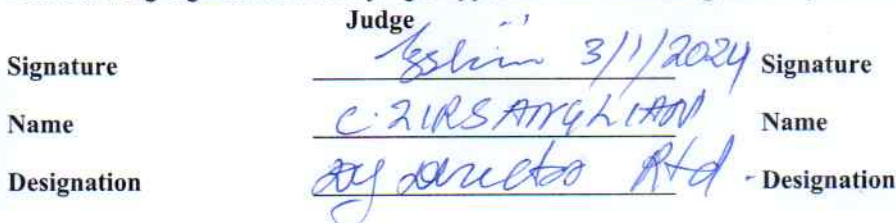 Judge
Signature 3/1/2024 Signature
Name C. ZIRSANGLIAN Name
Designation Dy Director Rtd - Designation